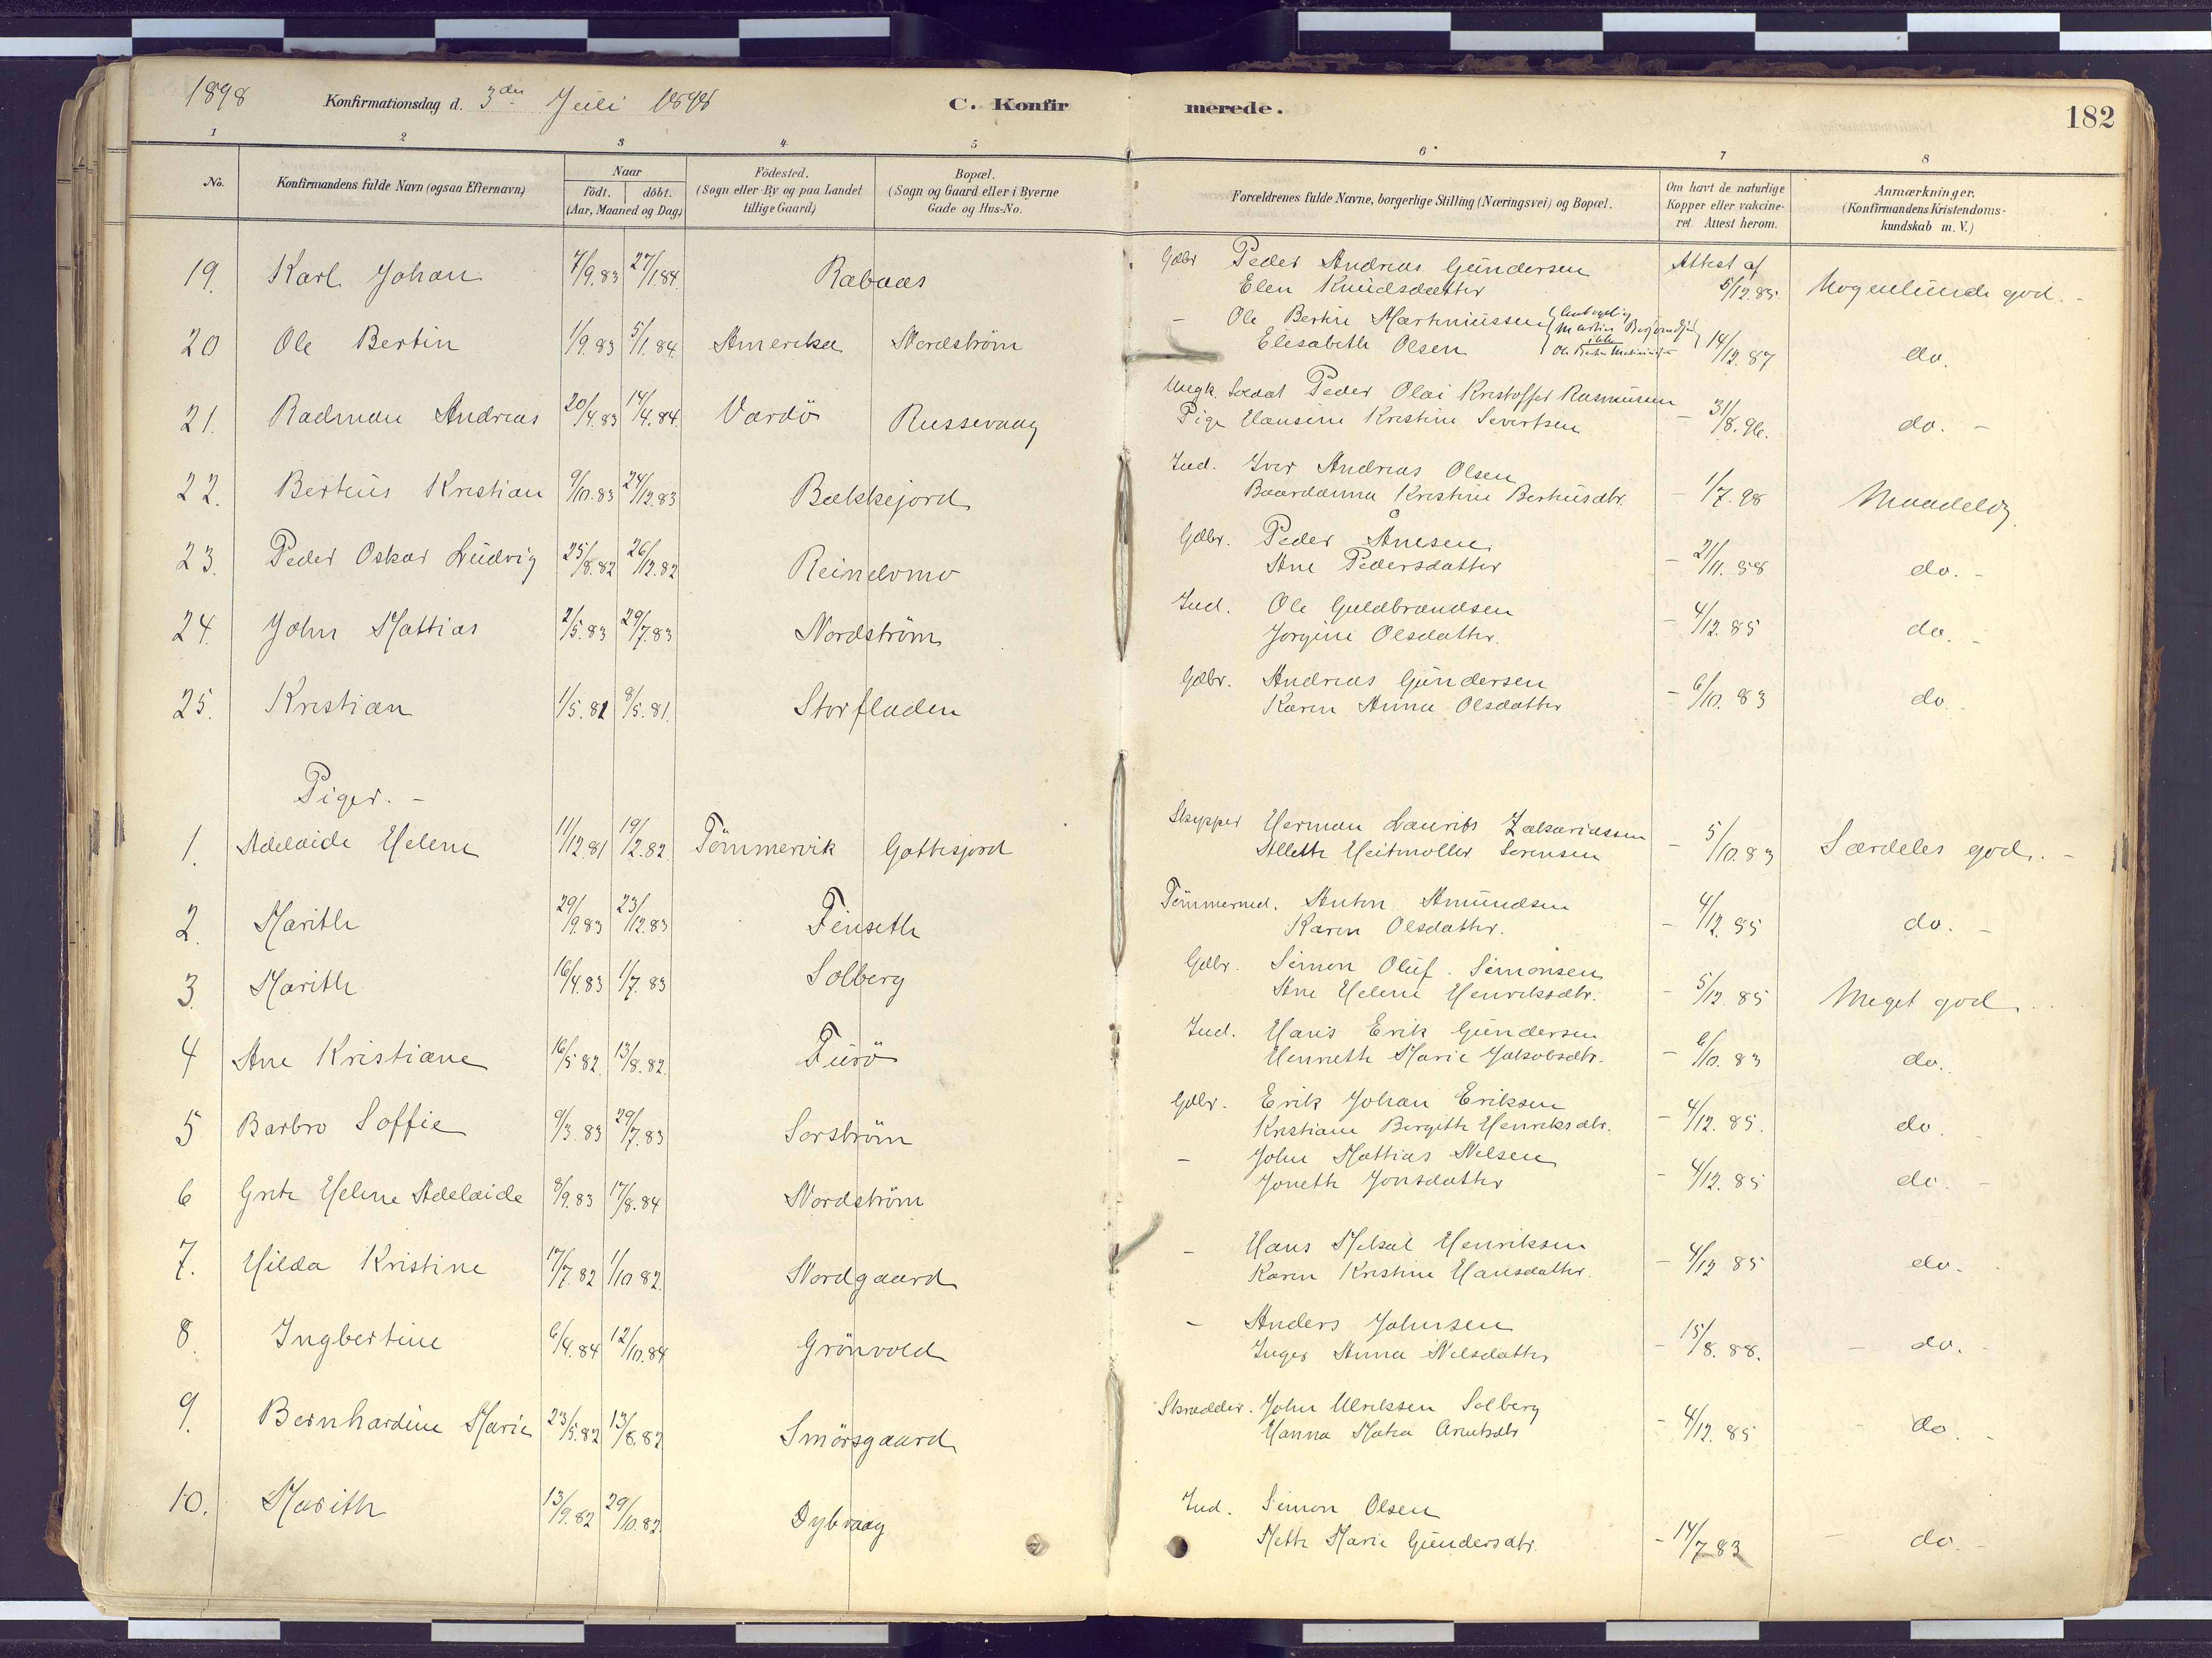 1898 Konfirmationsdag d. 3die Juli 1898 C. Konfirmerede. 182
1 2 3 4 5 6 7 8
No. Konfirmandens fulde Navn (ogsaa Efternavn) Naar födt. döbt. (Aar, Maaned og Dag) Födested. (Sogn eller By og paa Landet tillige Gaard) Bopæl. (Sogn og Gaard eller i Byerne Gade og Hus-No. Forældrenes fulde Navne, borgerlige Stilling (Næringsvei) og Bopæl. Om havt de naturlige Kopper eller vakcineret. Attest herom. Anmærkninger. (Konfirmandens Kristendomskundskab m. V.)
19. Karl Johan 7/9.83 27/1.84. Rabaas Gdbr Peder Andreas Gundersen Attest af
Elen Knudsdatter 5/12.85. Nogenlunde god. -
20 Ole Bertin 1/9.83 5/1.84. Amerika Nordström - Ole Bertin Martinussen
Elisabeth Olsen 14/12.87 do.
21. Radman Andreas 20/4.83 14/4.84. Vardö Russevaag Ungk. Soldat Peder Olai Kristoffer Rasmussen
Pige Hansine Kristine Sivertsen - 31/8.96. do. -
22. Bertius Kristian 9/10.83 24/12.83 Bakkejord Ind. Iver Andreas Olsen
Baardanna Kristine Bertiusdtr. - 1/7.98 Maadelig
23. Peder Oskar Ludvig 25/8.82 26/12.82 Reindomo Gdbr. Peder Ånesen
Ane Pedersdatter - 21/11.88 do. -
24. John Mattias 2/5.83 29/7.83 Nordström Ind. Ole Guldbrandsen
Jorgine Olsdatter. - 4/12.85 do. -
25. Kristian 1/5.81 8/5.81. Storfladen Gdbr. Andreas Gundersen
Karen Anna Olsdatter - 6/10.83 do.
Piger. -
1. Adelaide Helene 11/12.81 19/2.82 Tömmervik Gottesjord Skipper Herman Laurits Zakariassen
Allette Heitmoller Sorensen - 5/10.83 Særdeles god. -
2. Marith 29/9.83 23/12.83 Finseth Tömmermd. Anton Amundsen
Karen Olsdatter. - 4/12.85 do. -
3. Marith 16/4.83 1/7.83 Solberg Gdbr. Simon Oluf Simonsen
Ane Helene Henriksdtr. - 5/12.85 Meget god
4 Ane Kristiane 16/5 82. 13/8.82. Furö Ind. Hans Erik Gundersen
Hennette Marie Jakobsdtr. - 6/10.83 do.
5 Barbro Soffie 9/3.83 29/7.83 Sorström Gdbr. Erik Johan Eriksen
Kristiane Bergitte Henriksdtr. - 4/12.85. do.
6 Grete Helene Adelaide 8/9.83 17/8.84 Nordström - John Mattias Nilsen
Jonette Jonsdatter - 4/12.85 do. -
7. Hilda Kristine 17/7.82 1/10 82. Nordgaard - Hans Mikal Henriksen
Karen Kristine Hansdatter. - 4/12 85 do.
8. Ingbertine 6/4.84 12/10.84 Grönvold - Anders Johnsen
Inger Anna Nilsdatter - 15/8.88. - do. -
9. Bernhardine Marie 23/5.82 13/8.82 Smörsgaard Skrædder. John Ulriksen Solberg
Hanna Marta Arntsdtr - 4/12.85 - do -
10. Marith 13/9.82 29/10.82. Dybvaag Ind. Simon Olsen
Mette Marie Gundersdtr. - 14/7 83 - do. -